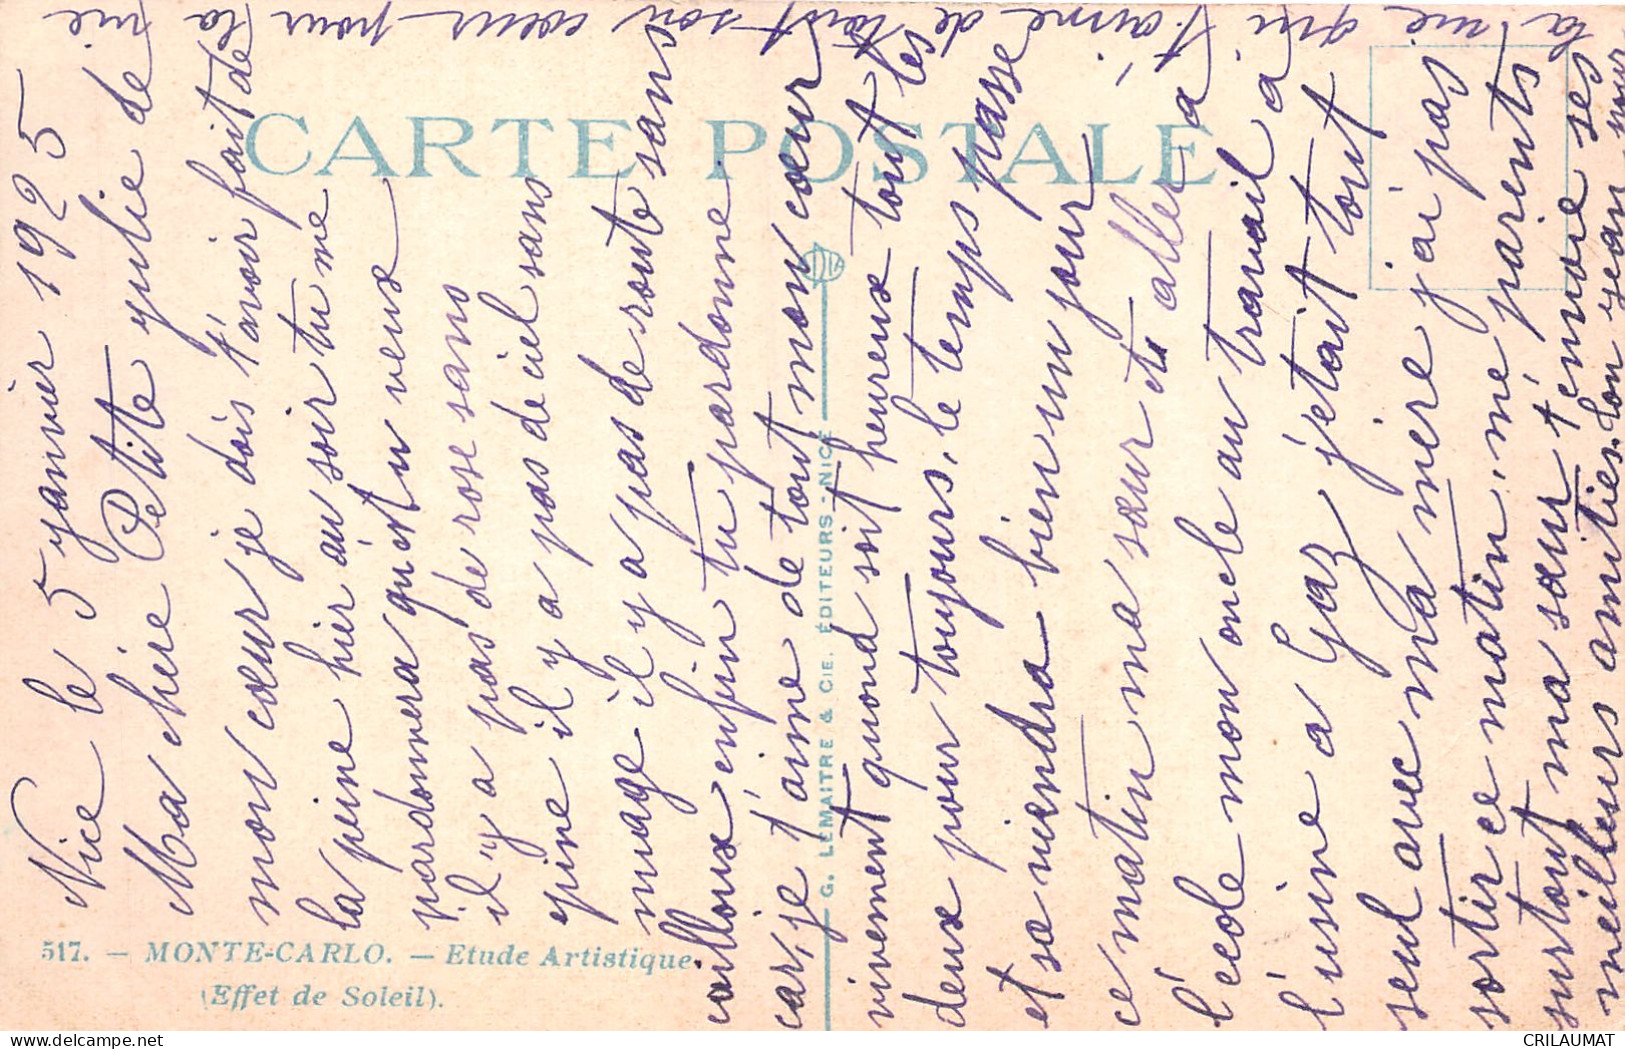 CARTE POSTALE
517. — MONTE-CARLO. — Etude Artistique
(Effet de Soleil).
G. LEMAITRE & CIE. ÉDITEURS - NICE
Nice le 5 janvier 1925
Ma chère Petite julie de
mon cœur je dois t'avoir fait de
la peine hier au soir tu me
pardonnera qu'est tu veux
il y a pas de rose sans
épine il y a pas de ciel sans
nuage il y a pas de route sans
cailloux enfin tu pardonne
car, je t'aime de tout mon cœur
vivement quand soit heureux tout les
deux pour toujours. le temps passe
et sa viendra bien un jour
ce matin ma sœur et aller a
l'école mon oncle au travail a
l'usine a Gaz j'etait tout
seul avec ma mère j'ai pas
sortir ce matin, me parents
surtout ma sœur t'envoie ses
meilleurs amitiés. ton jean pour
la vie qui t'aime de tout son cœur pour la vie
© delcampe.net
CRILAUMAT